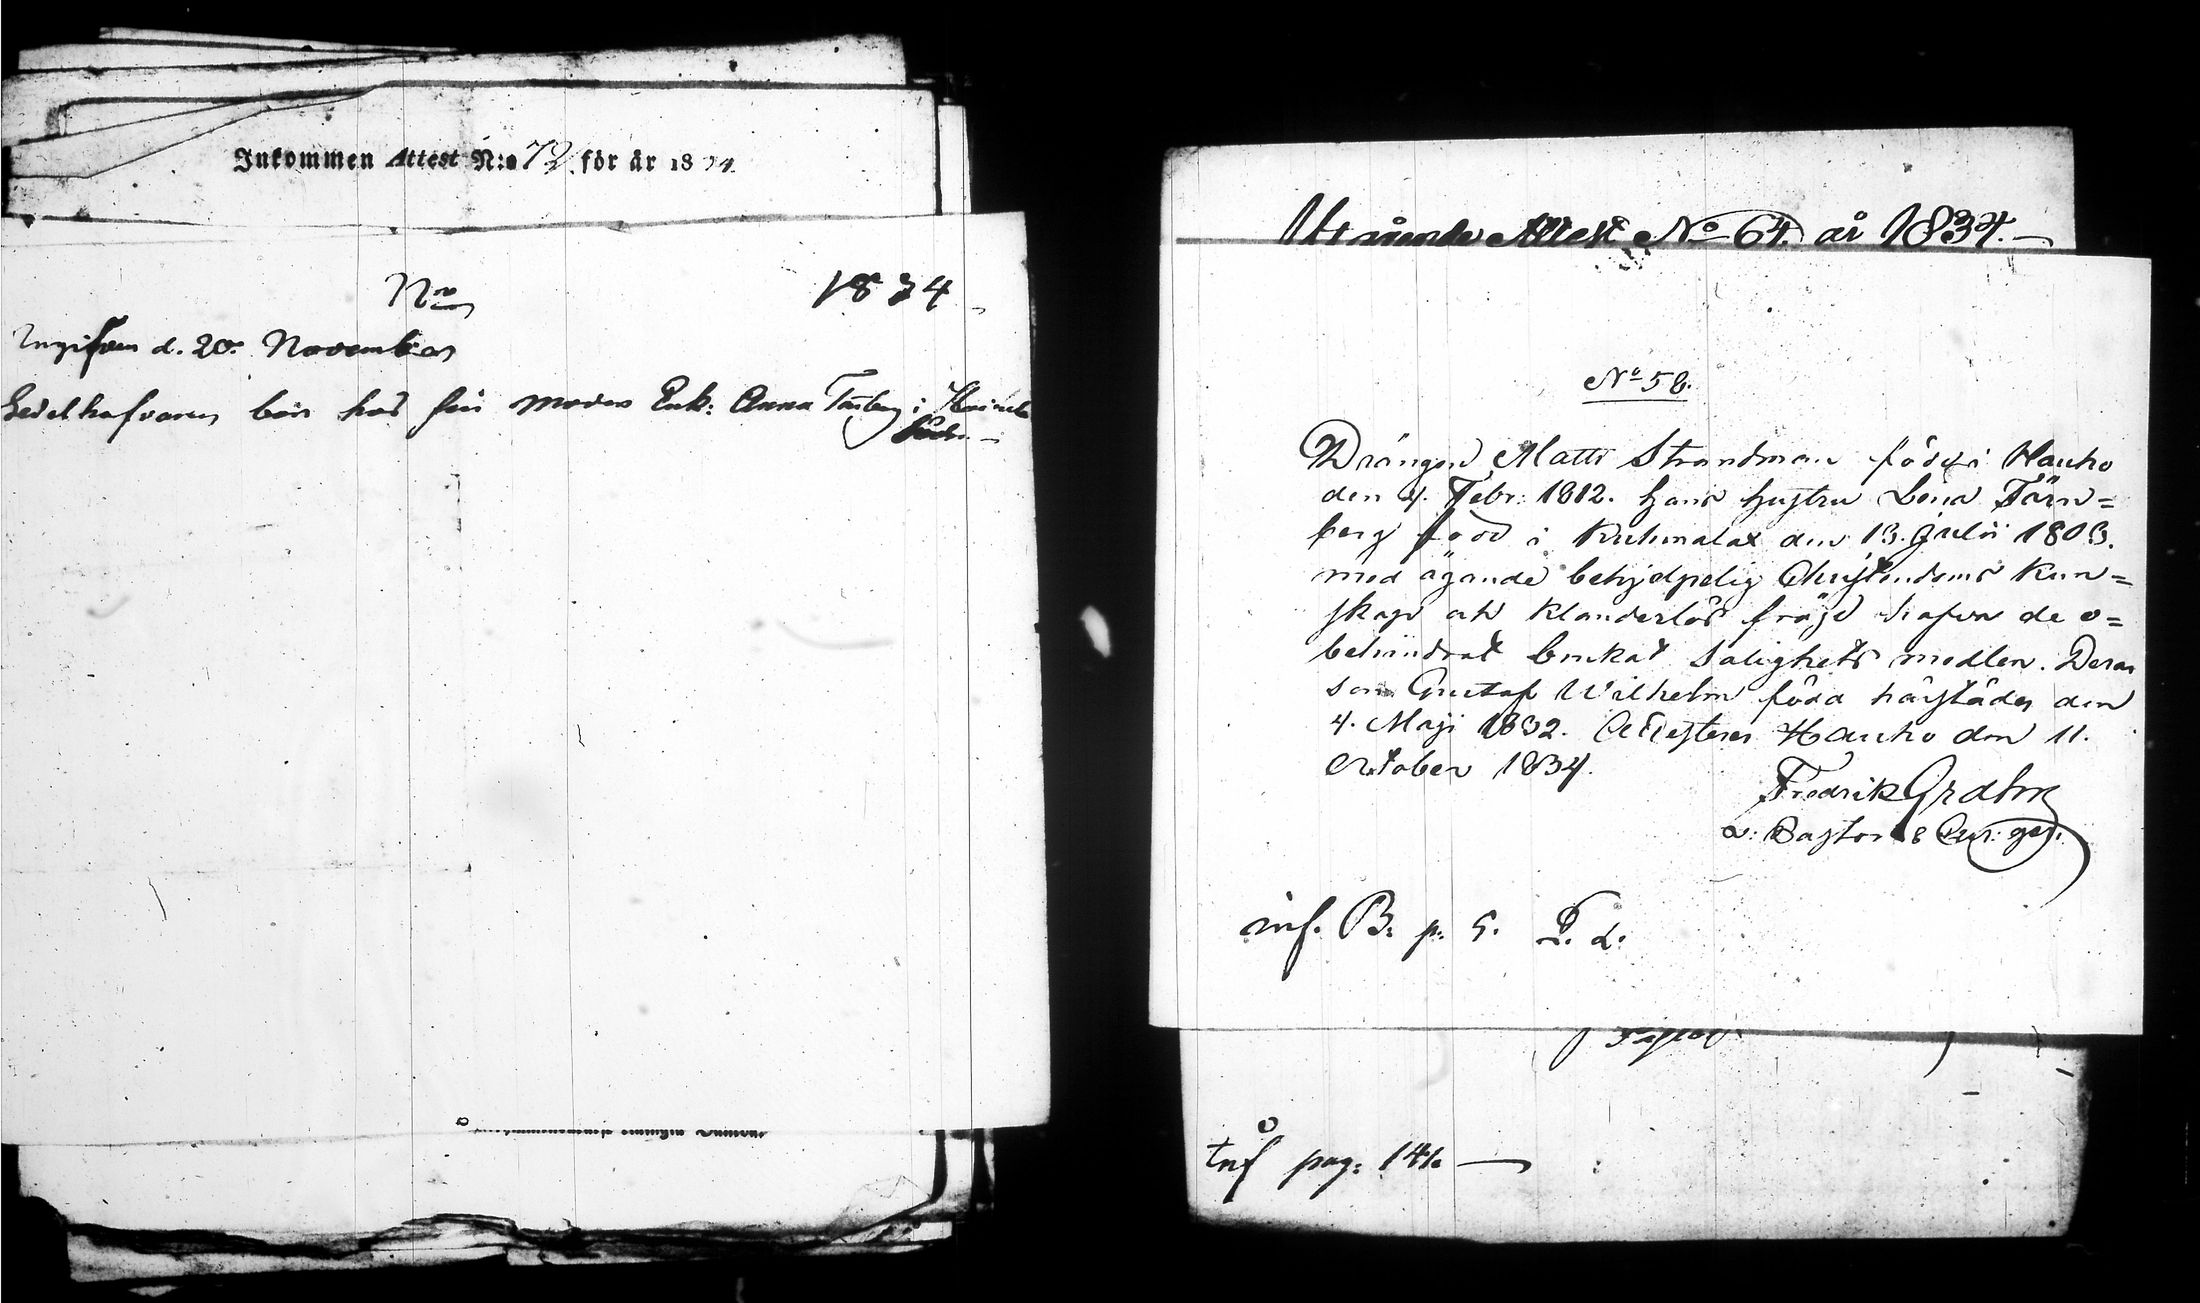 Inkommen Attest N:o 72 för år 1834.
No 1834
Ingifven d. 20. November
Sedelhafvaren bor hos sin moder Enk: Anna Tärnberg i
Utgående Attest No 64. år 1834.
No 58.
Drängen Matts Strandman född i Hauho
den 4. Febr: 1812. hans hustru Lena Tärn=
berg född i Kuhmalax den 13. Julii 1803.
med ägande behjelpelig Christendoms kun=
skap och klanderlös fräjd hafva de o=
behindrat brukat Salighets medlen. Deras
son Gustaf Wilhelm född härstädes den
4. Maji 1832. Attesterar Hauho den 11.
October 1834.
Fredrik
v: Pastor &
inf. B. p. 5. T. d.
inf pag: 141